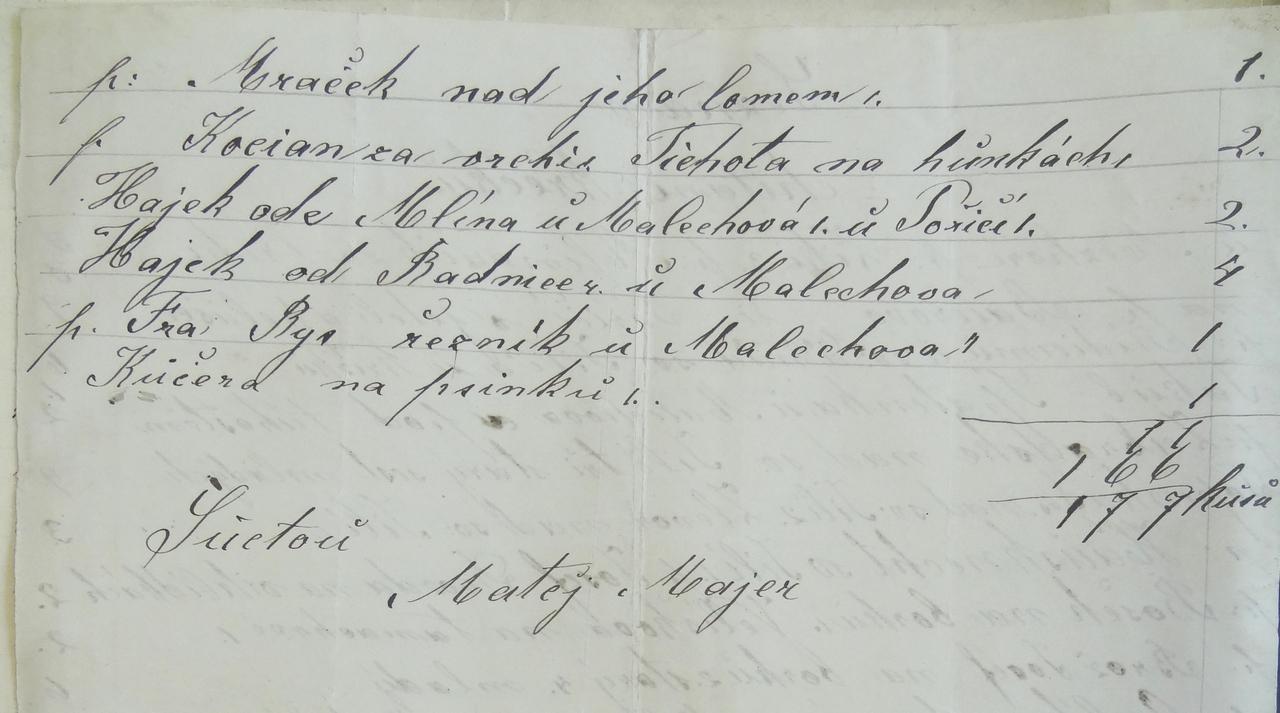 p: Mraček nad jeho lomem 1. 1.
p. Kocian za vrchi. Tichota na hůnkách 1 2.
Hajek ode Mlína ů Malechová 1. ů Poříčí 1. 2.
Hajek od Radnice 2. ů Malechova 4
p. Fra Rys řezník ů Malechova 1 1
Kučera na psinků 1. 1
11
166
177 kusů
S ůctoů
Matěj Majer